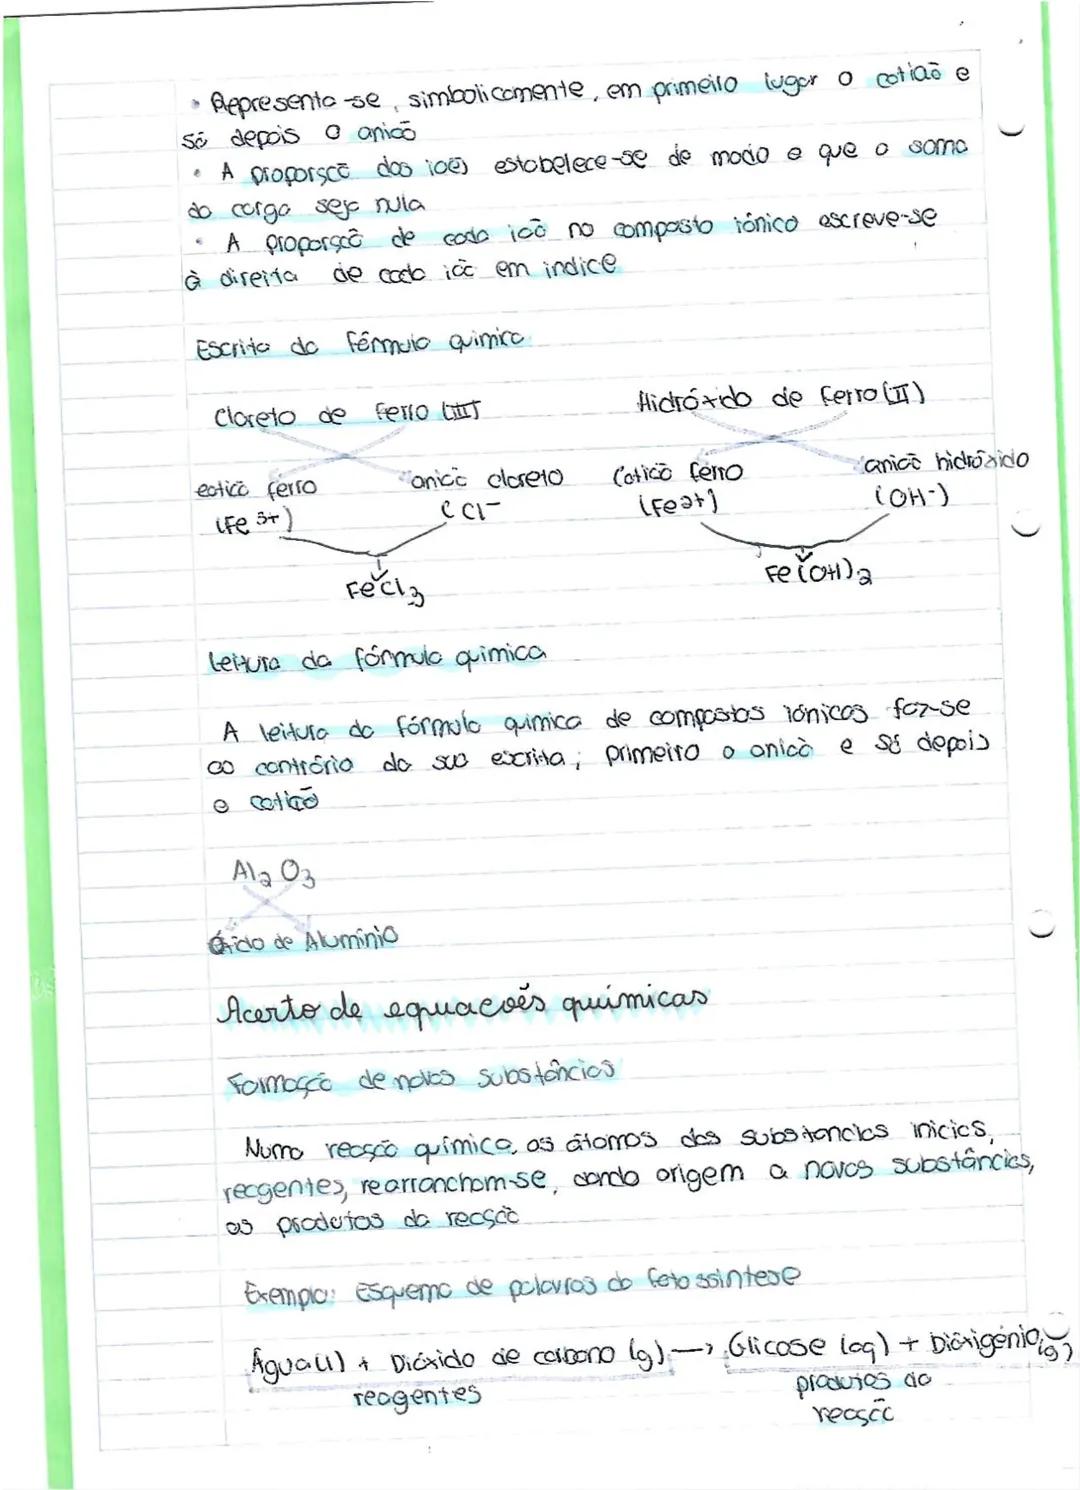 • Representa-se, simbolicamente, em primeiro lugar o catião e
só depois o anião
• A proporsção dos iões estabelece-se de modo a que a soma
da carga seja nula
• A proporção de cada ião no composto iónico escreve-se
à direita de cada ião em indice
Escrita da fórmula quimica
Cloreto de ferro (III)
Hidróxido de ferro (II)
catião ferro
anião cloreto
Catião ferro
anião hidróxido
(Fe 3+)
(Cl-
(Fe2+)
(OH-)
FeCl3
Fe(OH)2
Leitura da fórmula quimica
A leitura da fórmula quimica de compostos iónicos faz-se
ao contrário da sua escrita; primeiro o anião e só depois
o catião
Al2O3
Óxido de Aluminio
Acerto de equacoẽs químicas
Formação de novas substâncias
Numa reasção química, os átomos das substancias iniciais,
reagentes, rearrancham-se, dando origem a novas substâncias,
os produtos da reasção
Exemplo: Esquema de palavras da fotossintese
Água(l) + Dióxido de carbono (g) → Glicose (aq) + Dioxigénio(g)
reagentes
produtos da
reasção